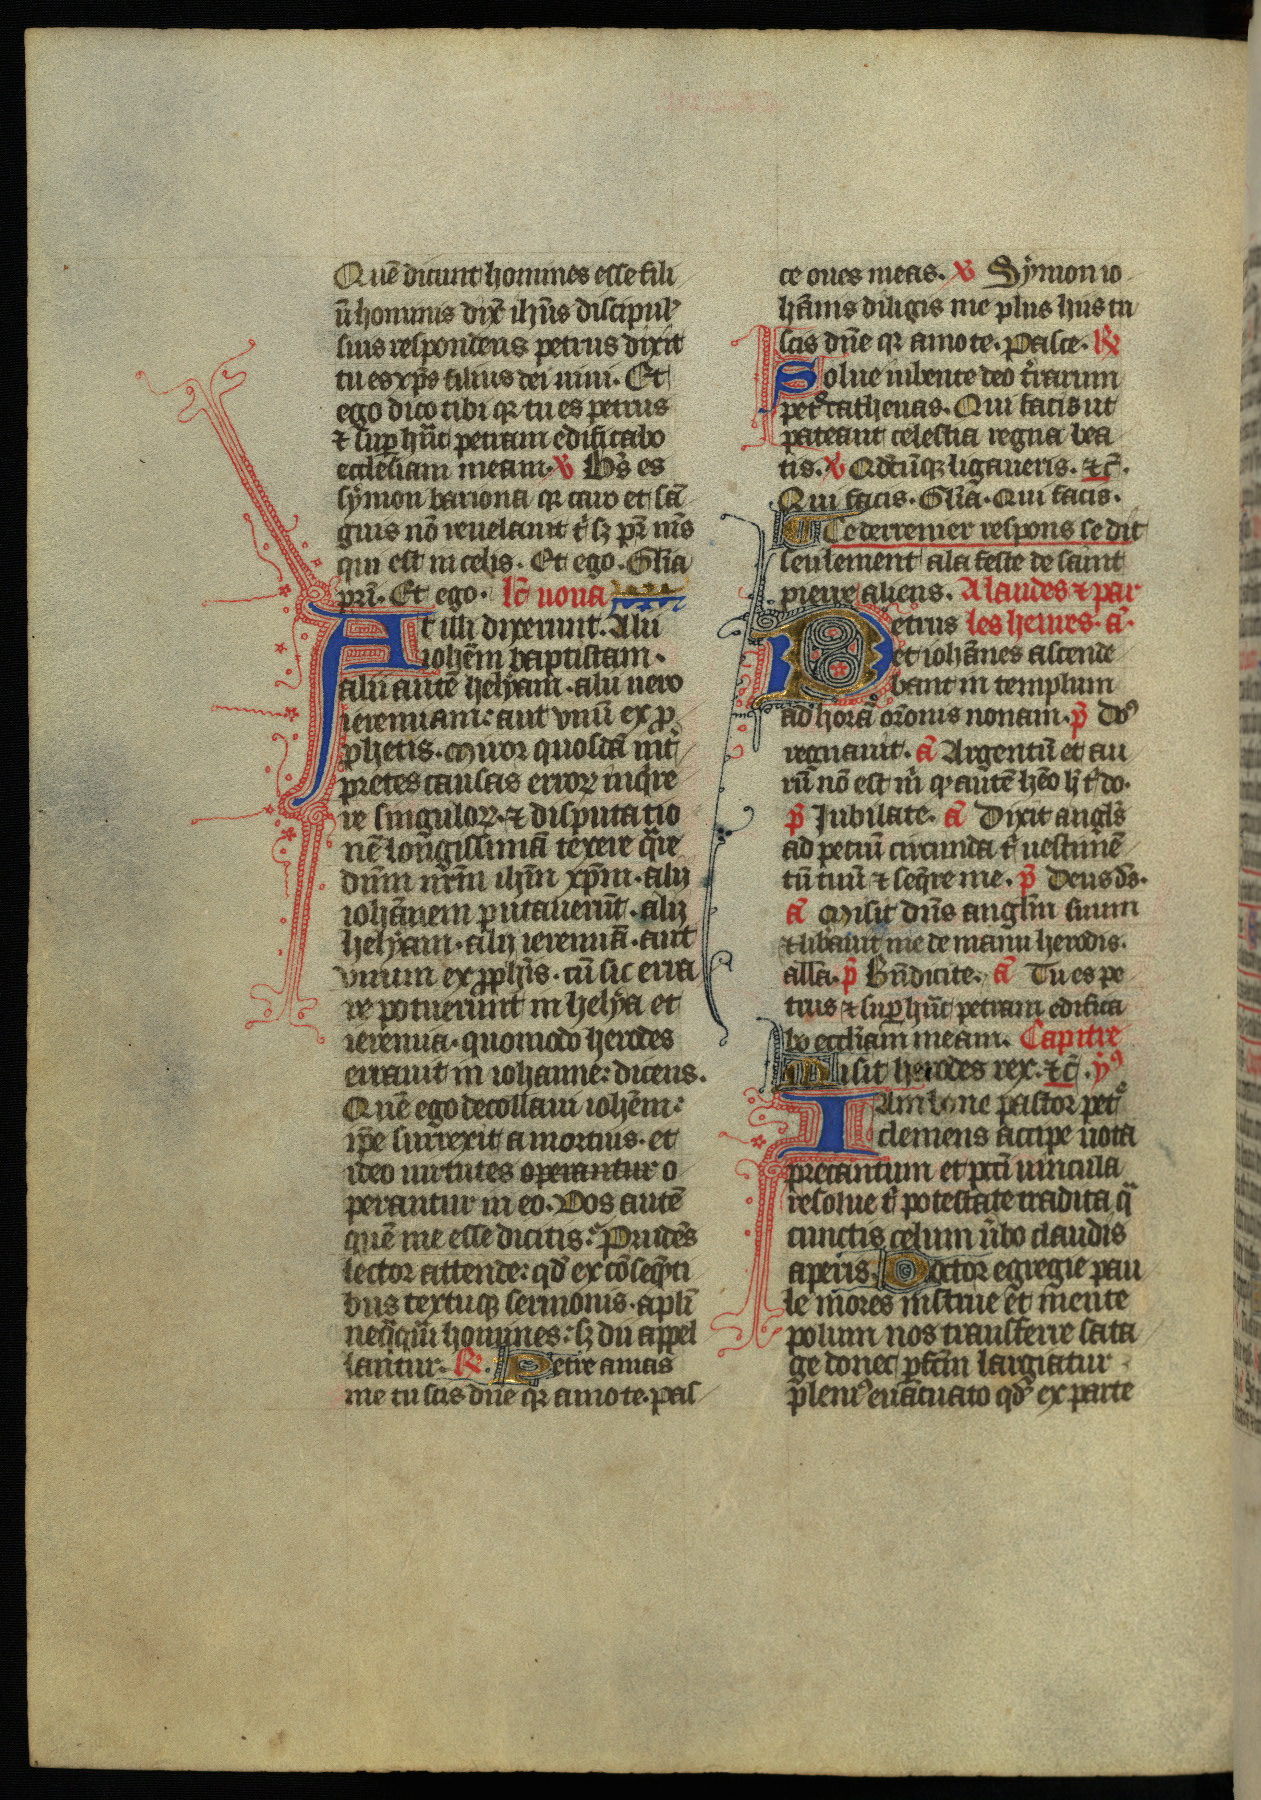 Quē dicunt homines esse fili
ū hominis dix̄ ih̄us discipul᷒
suis respondens petrus dixit
tu es xp̄s filius dei uiui. Et
ego dico tibi qr tu es petrus
⁊ sup hāc petram edificabo
ecclesiam meam. v̄ Bt̄s es
symon bariona qr caro et sā
guis nō reuelauit t̄ sꝫ pr̄ m̄s
qui est in celis. Et ego. Gl̄ia
pr̄i. Et ego. lc̄ nona
At illi dixerunt. Alii
ioh̄em baptistam.
alii autē helyam. alii uero
ieremiam: aut vnū ex ꝓ
phetis. Miror quosdā int̄
pretes causas erroꝝ inq̄re
re singuloꝝ. ⁊ disputatio
nē longissimā texere q̄re
dn̄m nr̄m ih̄m xp̄m. alij
iohānem putauerūt. alij
helyam. alij ieremiā. aut
vnum ex ꝓph̄is. cū sic erra
re potuerunt in helya et
ieremia. quomodo herodes
errauit in iohanne: dicens.
Quē ego decollaui ioh̄em:
ip̄e surrexit a mortuis. et
ideo uirtutes operantur o
perantur in eo. Vos autē
quē me esse dicitis: Prudēs
lector attende: qd̄ ex cōseq̄nti
bus textuqꝫ sermonis. apl̄i
neq̄q̄m homines: sꝫ dii appel
lantur. R̄. Petre amas
me tu scis dn̄e qr amo te. pas
ce oues meas. v̄ Symon io
hānis diligis me plus hiis tu
scis dn̄e qr amo te. Pasce. R̄
Solue iubente deo t̄rarum
petͤ cathenas. Qui facis ut
pateant celestia regna bea
tis. v̄ Qdcūqꝫ ligaueris. ⁊c̄.
Qui facis. Gl̄ia. Qui facis.
Ce derrenier respons se dit
seulement a la feste de saint
pierre aliens. A laudes ⁊ par
Petrus les heures. a.
et iohānes ascende
bant in templum
ad horā or̄onis nonam. p̄ Dn᷒
regnauit. ā Argentū et au
rū nō est m̄ q᷒ autē hēo h̄ t̄ do.
p̄ Jubilate. ā Dixit angl̄s
ad petrū circunda t̄ uestimē
tū tuū ⁊ seq̄re me. p̄ Deus ds̄.
ā Misit dn̄s angl̄m suum
⁊ lib̄auit me de manu herodis.
all̄a. p̄ Bn̄dicite. ā Tu es pe
trus ⁊ sup hāc petram edifica
bo eccl̄iam meam. Capitre
Misit herodes rex. ⁊c̄. ȳ᷒
Iam bone pastor petͤ
clemens accipe uota
precantum et pcc̄i uincula
resolue t̄ potestate tradita q̄
cunctis celum ūbo claudis
aperis. Doctor egregie pau
le mores instrue et mente
polum nos transferre sata
ge donec ꝑfcm̄ largiatur
pleni᷒ euacuato qd̄ ex parte